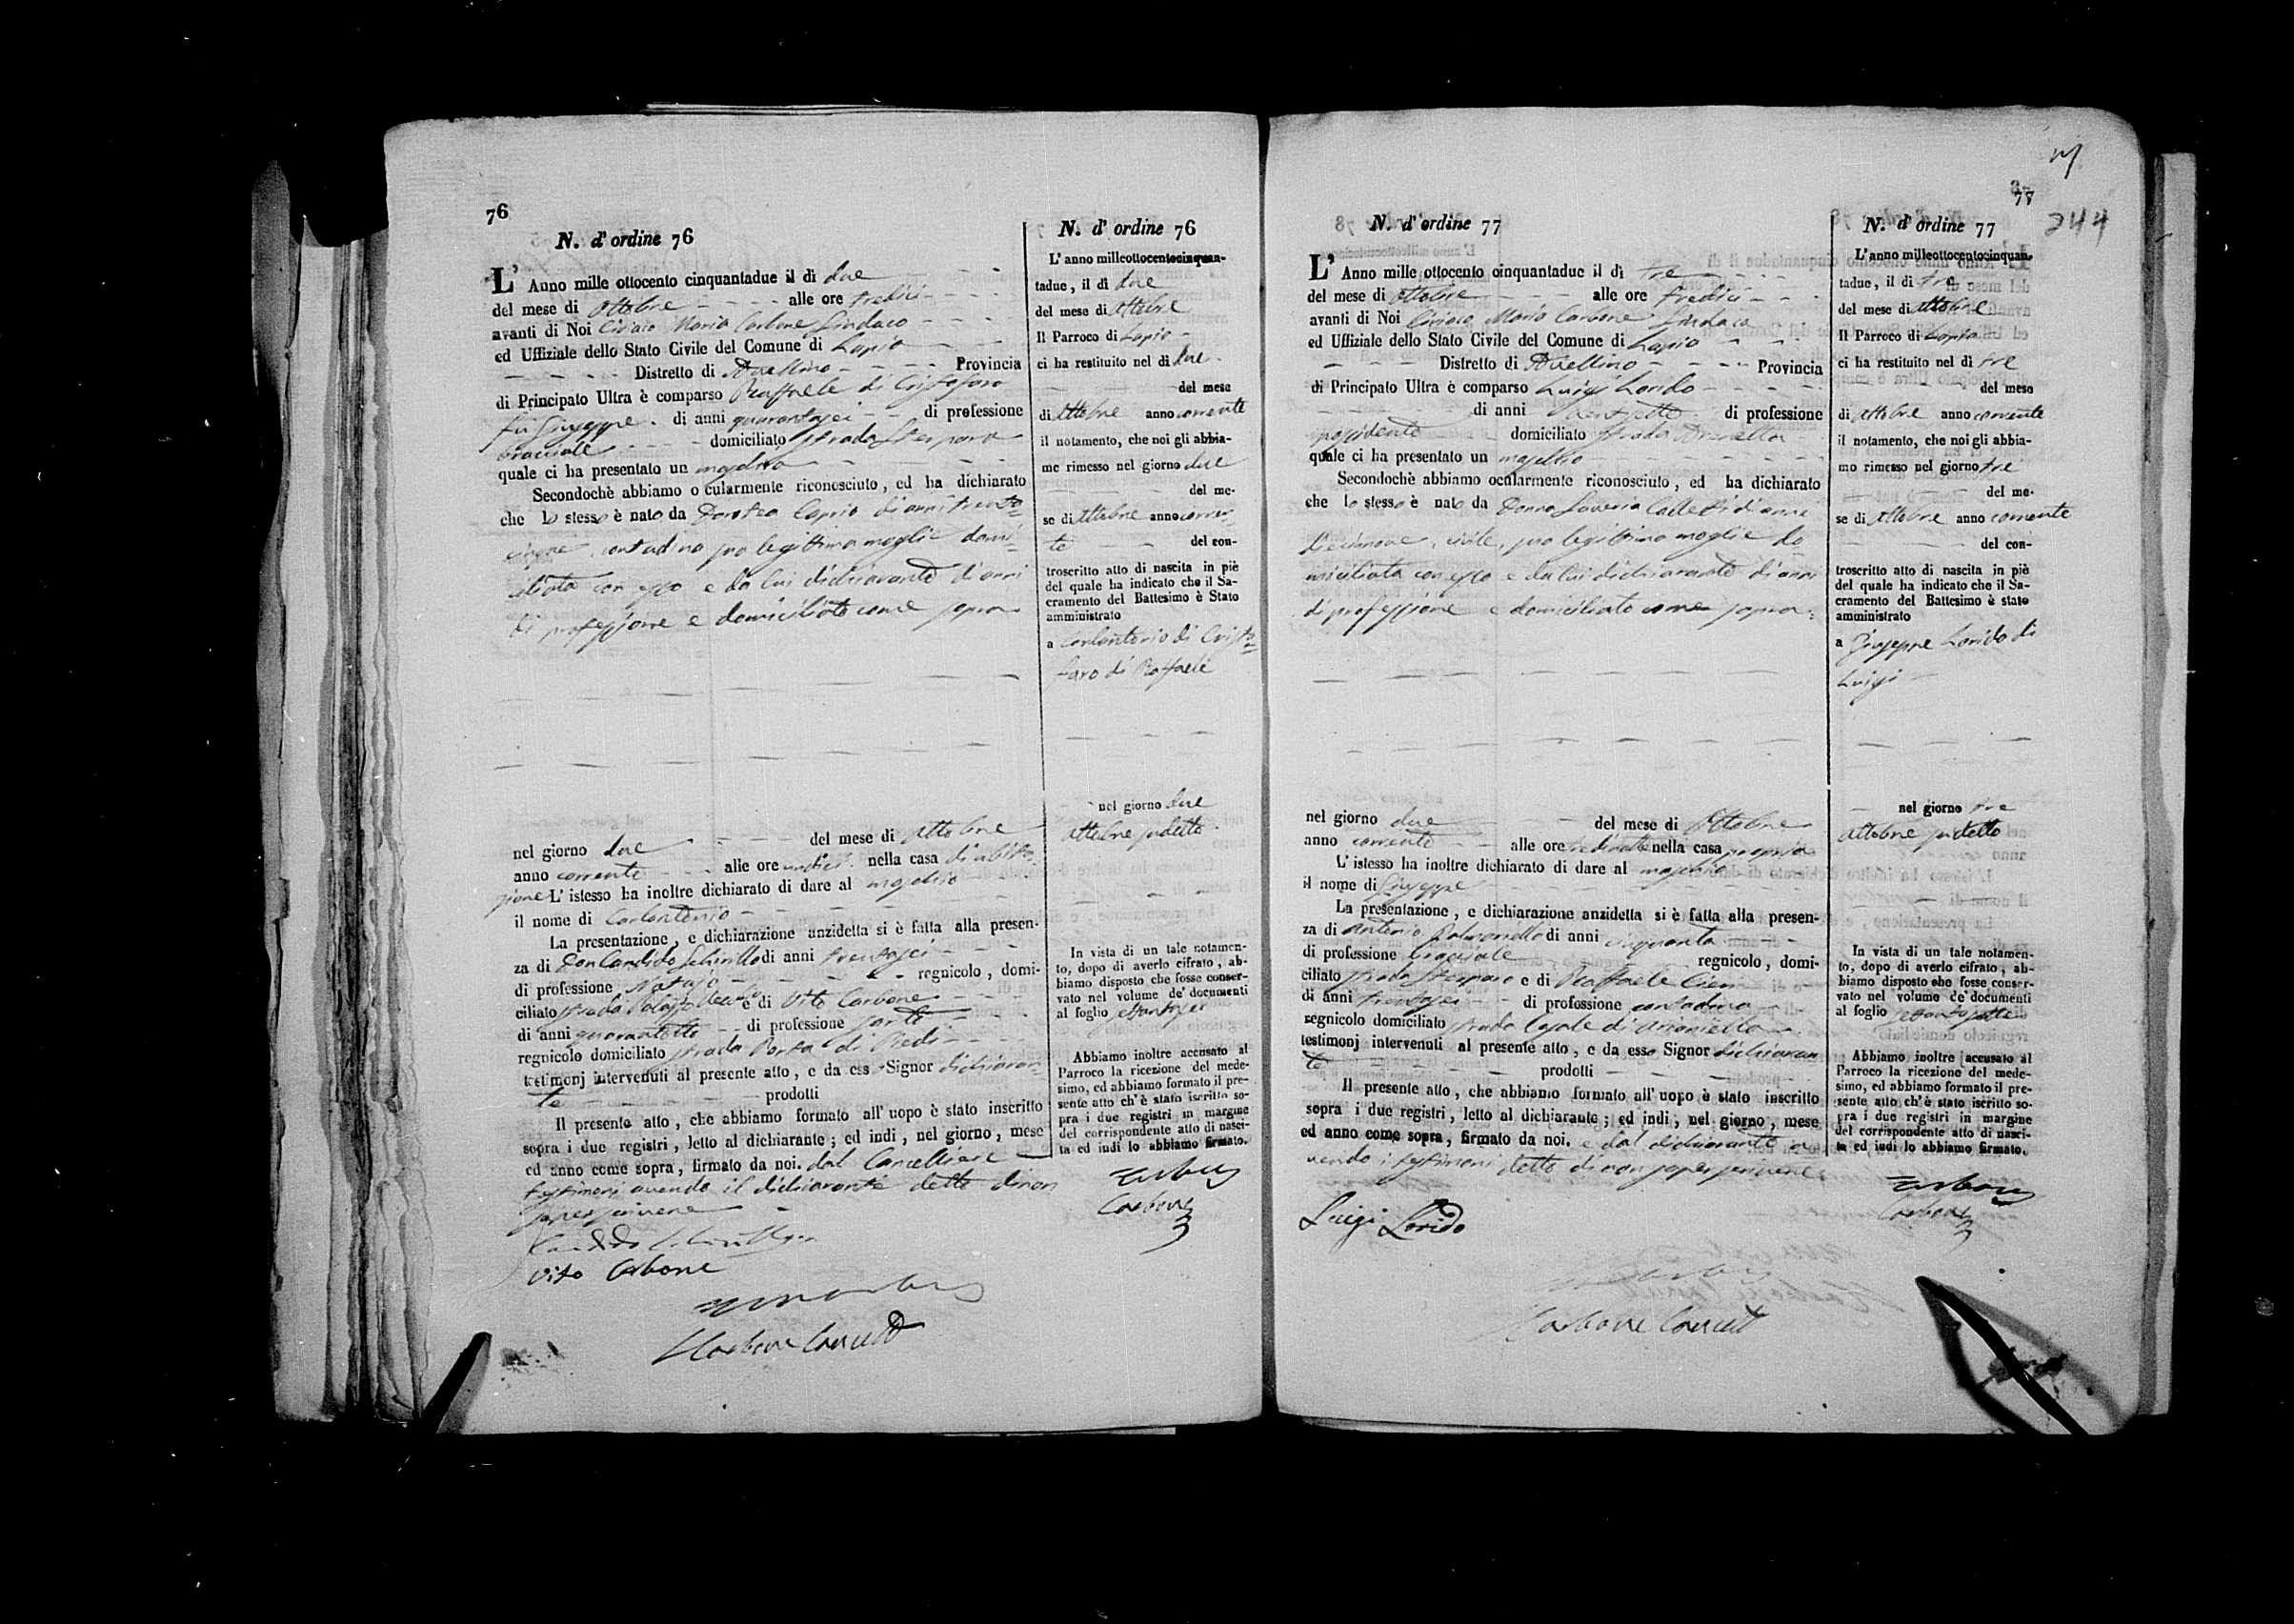 76
N. d' ordine 76
L' Anno mille ottocento cinquantadue il dì due
del mese di Ottobre alle ore tredici
avanti di Noi Ciriaco Maria Carbone Sindaco
ed Uffiziale dello Stato Civile del Comune di Lapio
Distretto di Avellino Provincia
di Principato Ultra è comparso Raffaele di Cristofaro
fu Giuseppe di anni quarantasei di professione
bracciale domiciliato strada
quale ci ha presentato un maschio
Secondochè abbiamo ocularmente riconosciuto, ed ha dichiarato
che lo stesso è nato da Dorotea Caprio di anni trenta
cinque, contadina sua legittima moglie domi
ciliata con esso e da lui dichiarante di anni
di professione e domiciliato come sopra
nel giorno due del mese di Ottobre
anno corrente alle ore undici nella casa di abita
zione L' istesso ha inoltre dichiarato di dare al maschio
il nome di Carlantonio
La presentazione, e dichiarazione anzidetta si è fatta alla presen-
za di Don Candido Schirillo di anni trentasei
di professione Notajo regnicolo, domi-
ciliato strada e di Vito Carbone
di anni quarantotto di professione sarto
regnicolo domiciliato strada Porta di Piedi
testimonj intervenuti al presente atto, e da ess Signor dichiaran
te prodotti
Il presente atto, che abbiamo formato all' uopo è stato inscritto
sopra i due registri, letto al dichiarante; ed indi, nel giorno, mese
ed anno come sopra, firmato da noi. dal Cancelliere
testimoni avendo il dichiarante detto di non
saper scrivere
Candido Schirillo
Vito Carbone
Carbone Cancell
N. d' ordine 76
L' anno milleottocentocinquan-
tadue, il dì due
del mese di Ottobre
Il Parroco di Lapio
ci ha restituito nel dì due
del mese
di Ottobre anno corrente
il notamento, che noi gli abbia-
mo rimesso nel giorno due
del me-
se di Ottobre anno corren
te del con-
troscritto atto di nascita in piè
del quale ha indicato che il Sa-
cramento del Battesimo è Stato
amministrato
a Carlantonio di Cristo
faro di Raffaele
nel giorno due
Ottobre sudetto
In vista di un tale notamen-
to, dopo di averlo cifrato, ab-
biamo disposto che fosse conser-
vato nel volume de' documenti
al foglio settantasei
Abbiamo inoltre accusato al
Parroco la ricezione del mede-
simo, ed abbiamo formato il pre-
sente atto ch' è stato iscritto so-
pra i due registri in margine
del corrispondente atto di nasci-
ta ed indi lo abbiamo firmato.
Carbone
77
244
N. d' ordine 77
L' Anno mille ottocento cinquantadue il dì tre
del mese di Ottobre alle ore tredici
avanti di Noi Ciriaco Maria Carbone Sindaco
ed Uffiziale dello Stato Civile del Comune di Lapio
Distretto di Avellino Provincia
di Principato Ultra è comparso Luigi Lorido
di anni ventisette di professione
possidente domiciliato strada
quale ci ha presentato un maschio
Secondochè abbiamo ocularmente riconosciuto, ed ha dichiarato
che lo stesso è nato da Donna Saveria di anni
diecinnove, civile, sua legittima moglie do
miciliata con esso e da lui dichiarante di anni
di professione e domiciliato come sopra
nel giorno due del mese di Ottobre
anno corrente alle ore nella casa propria
L' istesso ha inoltre dichiarato di dare al maschio
il nome di Giuseppe
La presentazione, e dichiarazione anzidetta si è fatta alla presen-
za di Antonio di anni cinquanta
di professione bracciale regnicolo, domi-
ciliato strada e di Raffaele
di anni trentasei di professione contadino
regnicolo domiciliato strada
testimonj intervenuti al presente atto, e da esso Signor dichiaran
te prodotti
Il presente atto, che abbiamo formato all' uopo è stato inscritto
sopra i due registri, letto al dichiarante; ed indi, nel giorno, mese
ed anno come sopra, firmato da noi. e dal dichiarante a
vendo i testimoni detto di non saper scrivere
Luigi Lorido
Carbone Cancell
N. d' ordine 77
L' anno milleottocentocinquan-
tadue, il dì tre
del mese di Ottobre
Il Parroco di Lapio
ci ha restituito nel dì tre
del mese
di Ottobre anno corrente
il notamento, che noi gli abbia-
mo rimesso nel giorno tre
del me-
se di Ottobre anno corrente
del con-
troscritto atto di nascita in piè
del quale ha indicato che il Sa-
cramento del Battesimo è stato
amministrato
a Giuseppe Lorido di
Luigi
nel giorno tre
Ottobre sudetto
In vista di un tale notamen-
to, dopo di averlo cifrato, ab-
biamo disposto che fosse conser-
vato nel volume de' documenti
al foglio settantasette
Abbiamo inoltre accusato al
Parroco la ricezione del mede-
simo, ed abbiamo formato il pre-
sente atto ch' è stato iscritto so-
pra i due registri in margine
del corrispondente atto di nasci-
ta ed indi lo abbiamo firmato.
Carbone